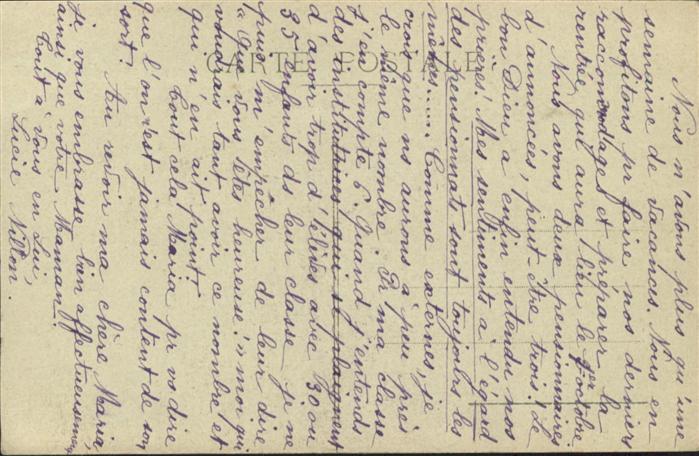 Nous n'avons plus qu'une
semaine de vacances. Nous en
profitons pr faire nos derniers
raccomodages et préparer la
rentrée qui aura lieu le 1er octobre
Nous avons deux pensionnaires
d'annoncés, peut-être trois! Le
bon Dieu a enfin entendu nos
prières! Mes sentiments à l'égard
des pensionnats sont toujours les
mêmes..... Comme externes, je
crois que ns aurons à peu près
le même nombre. Pr ma classe
j'en compte 6. Quand j'entends
des institutrices qui se plaignent
d'avoir trop d'élèves avec 30 ou
35 enfants ds leur classe je ne
puis m'empêcher de leur dire
"Que vous êtes heureuse!" moi qui
voudrais tant avoir ce nombre et
qui n'en ait point!
Tout cela Maria pr vs dire
que l'on n'est jamais content de son
sort. Au revoir ma chère Maria
je vous embrasse bien affectueusement
ainsi que votre Maman.
Tout à vous en Lui,
Lucie
CARTE POSTALE